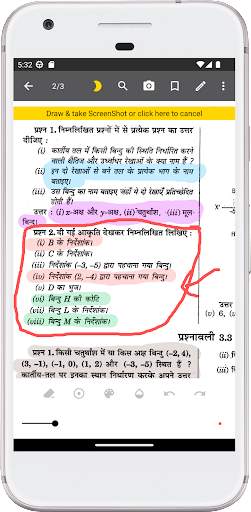 5:32
2/3
Draw & take ScreenShot or click here to cancel
प्रश्न 1. निम्नलिखित प्रश्नों में से प्रत्येक प्रश्न का उत्तर
दीजिए :
(i) कार्तीय तल में किसी बिन्दु की स्थिति निर्धारित करने
वाली क्षैतिज और उर्ध्वाधर रेखाओं के क्या नाम हैं ?
(ii) इन दो रेखाओं से बने तल के प्रत्येक भाग के नाम
बताइए।
(iii) उस बिन्दु का नाम बताइए जहाँ ये दो रेखाएँ प्रतिच्छेदित
होती हैं।
उत्तर : (i) x-अक्ष और y-अक्ष, (ii) चतुर्थांश, (iii) मूल-
बिन्दु।
प्रश्न 2. दी गई आकृति देखकर निम्नलिखित लिखिए :
(i) B के निर्देशांक।
(ii) C के निर्देशांक।
(iii) निर्देशांक (–3, –5) द्वारा पहचाना गया बिन्दु।
(iv) निर्देशांक (2, –4) द्वारा पहचाना गया बिन्दु।
(v) D का भुज।
(vi) बिन्दु H की कोटि
(vii) बिन्दु L के निर्देशांक।
(viii) बिन्दु M के निर्देशांक।
प्रश्न 1. किसी चतुर्थांश में या किस अक्ष बिन्दु (–2, 4),
(3, –1), (–1, 0), (1, 2) और (–3, –5) स्थित हैं ?
कार्तीय-तल पर इनका स्थान निर्धारण करके अपने उत्तर
X'
–5
उत्तर
(v) 6, (v
प्रश्नावली 3.3
(ii) f
(iii)